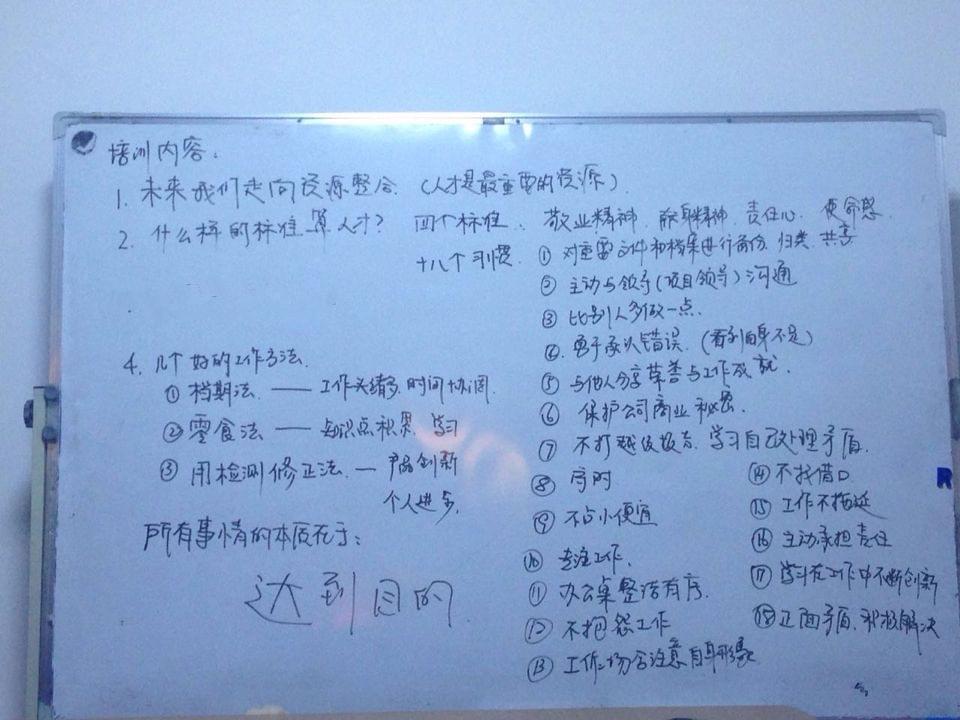 培训内容：
1. 未来我们走向资源整合（人才是最重要的资源）.
2. 什么样的标准算人才？ 四个标准： 敬业精神 献身精神. 责任心. 使命感.
十八个习惯
① 对重要文件和档案进行备份. 归类. 共享
② 主动与领导(项目领导)沟通
③ 比别人多做一点.
④. 勇于承认错误. (看到自身不足)
⑤ 与他人分享荣誉与工作成就.
⑥ 保护公司商业秘密.
⑦ 不打越级报告. 学习自己处理矛盾
⑧ 守时
⑨ 不占小便宜
⑩ 专注工作.
⑪ 办公桌整洁有序.
⑫ 不抱怨工作
⑬ 工作场合注意自身形象
⑭ 不找借口
⑮ 工作不拖延
⑯ 主动承担责任
⑰ 学习在工作中不断创新
⑱ 正面矛盾. 积极解决
4. 几个好的工作方法.
① 档期法 —— 工作头绪多. 时间协调.
② 零食法 —— 知识点积累. 学习
③ 用检测修正法. — 产品创新
个人进步.
所有事情的本质在于：
达到目的